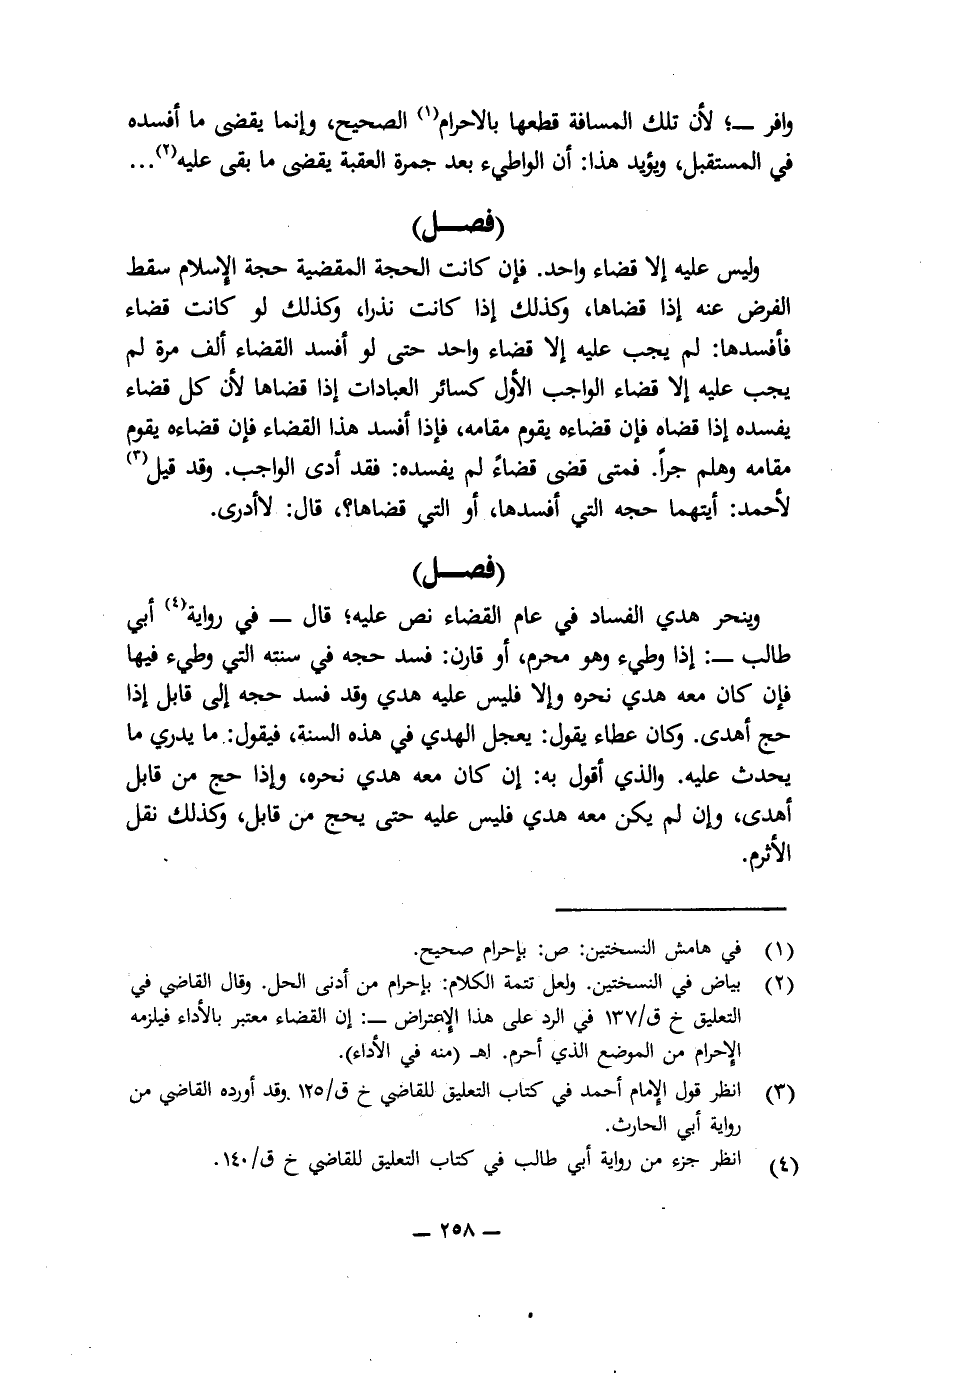 وافر ــ؛ لأن تلك المسافة قطعها بالاحرام(١) الصحيح، وإنما يقضى ما أفسده
في المستقبل، ويؤيد هذا: أن الواطيء بعد جمرة العقبة يقضى ما بقى عليه(٢)...
(فصـــل)
وليس عليه إلا قضاء واحد. فإن كانت الحجة المقضية حجة الإسلام سقط
الفرض عنه إذا قضاها، وكذلك إذا كانت نذرا، وكذلك لو كانت قضاء
فأفسدها: لم يجب عليه إلا قضاء واحد حتى لو أفسد القضاء ألف مرة لم
يجب عليه إلا قضاء الواجب الأول كسائر العبادات إذا قضاها لأن كل قضاء
يفسده إذا قضاه فإن قضاءه يقوم مقامه، فإذا أفسد هذا القضاء فإن قضاءه يقوم
مقامه وهلم جراً. فمتى قضى قضاءً لم يفسده: فقد أدى الواجب. وقد قيل(٣)
لأحمد: أيتهما حجه التي أفسدها، أو التي قضاها؟، قال: لاأدرى.
(فصـــل)
وينحر هدي الفساد في عام القضاء نص عليه؛ قال ــ في رواية(٤) أبي
طالب ــ: إذا وطيء وهو محرم، أو قارن: فسد حجه في سنته التي وطيء فيها
فإن كان معه هدي نحره وإلا فليس عليه هدي وقد فسد حجه إلى قابل إذا
حج أهدى. وكان عطاء يقول: يعجل الهدي في هذه السنة، فيقول: ما يدري ما
يحدث عليه. والذي أقول به: إن كان معه هدي نحره، وإذا حج من قابل
أهدى، وإن لم يكن معه هدي فليس عليه حتى يحج من قابل، وكذلك نقل
الأثرم.
(١) في هامش النسختين: ص: بإحرام صحيح.
(٢) بياض في النسختين. ولعل تتمة الكلام: بإحرام من أدنى الحل. وقال القاضي في
التعليق خ ق/١٣٧ في الرد على هذا الإعتراض ــ: إن القضاء معتبر بالأداء فيلزمه
الإحرام من الموضع الذي أحرم. اهـ (منه في الأداء).
(٣) انظر قول الإمام أحمد في كتاب التعليق للقاضي خ ق/١٢٥ .وقد أورده القاضي من
رواية أبي الحارث.
(٤) انظر جزء من رواية أبي طالب في كتاب التعليق للقاضي خ ق/١٤٠.
ــ ٢٥٨ ــ